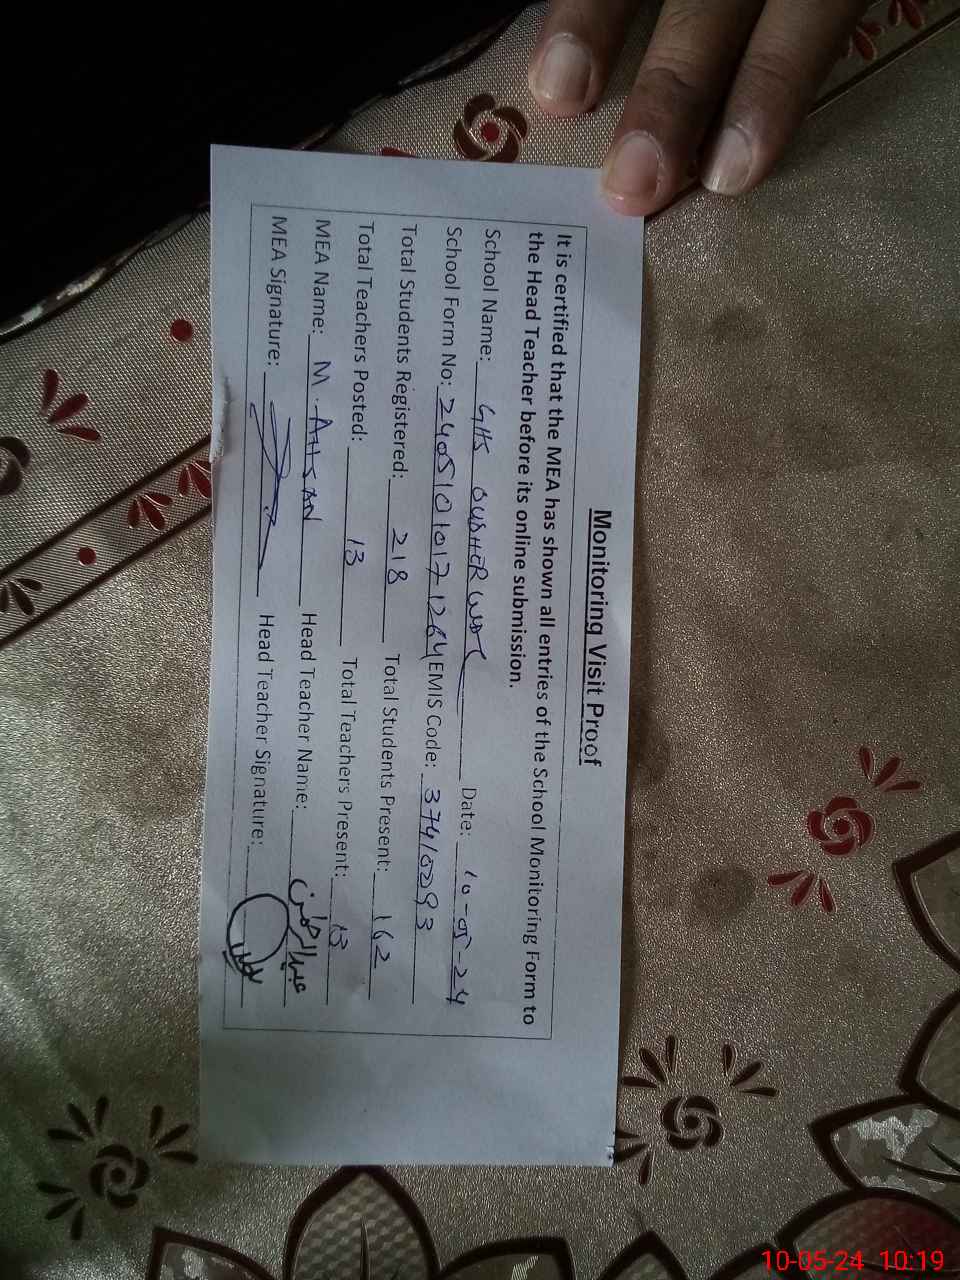 Monitoring Visit Proof
It is certified that the MEA has shown all entries of the School Monitoring Form to
the Head Teacher before its online submission.
School Name: GHS Date: 10-05-24
School Form No: 24051010171264 EMIS Code: 37410293
Total Students Registered: 218 Total Students Present: 162
Total Teachers Posted: 13 Total Teachers Present: 13
MEA Name: M. AHSAN Head Teacher Name: عبدالرحمن
MEA Signature: Head Teacher Signature:
10-05-24 10:19